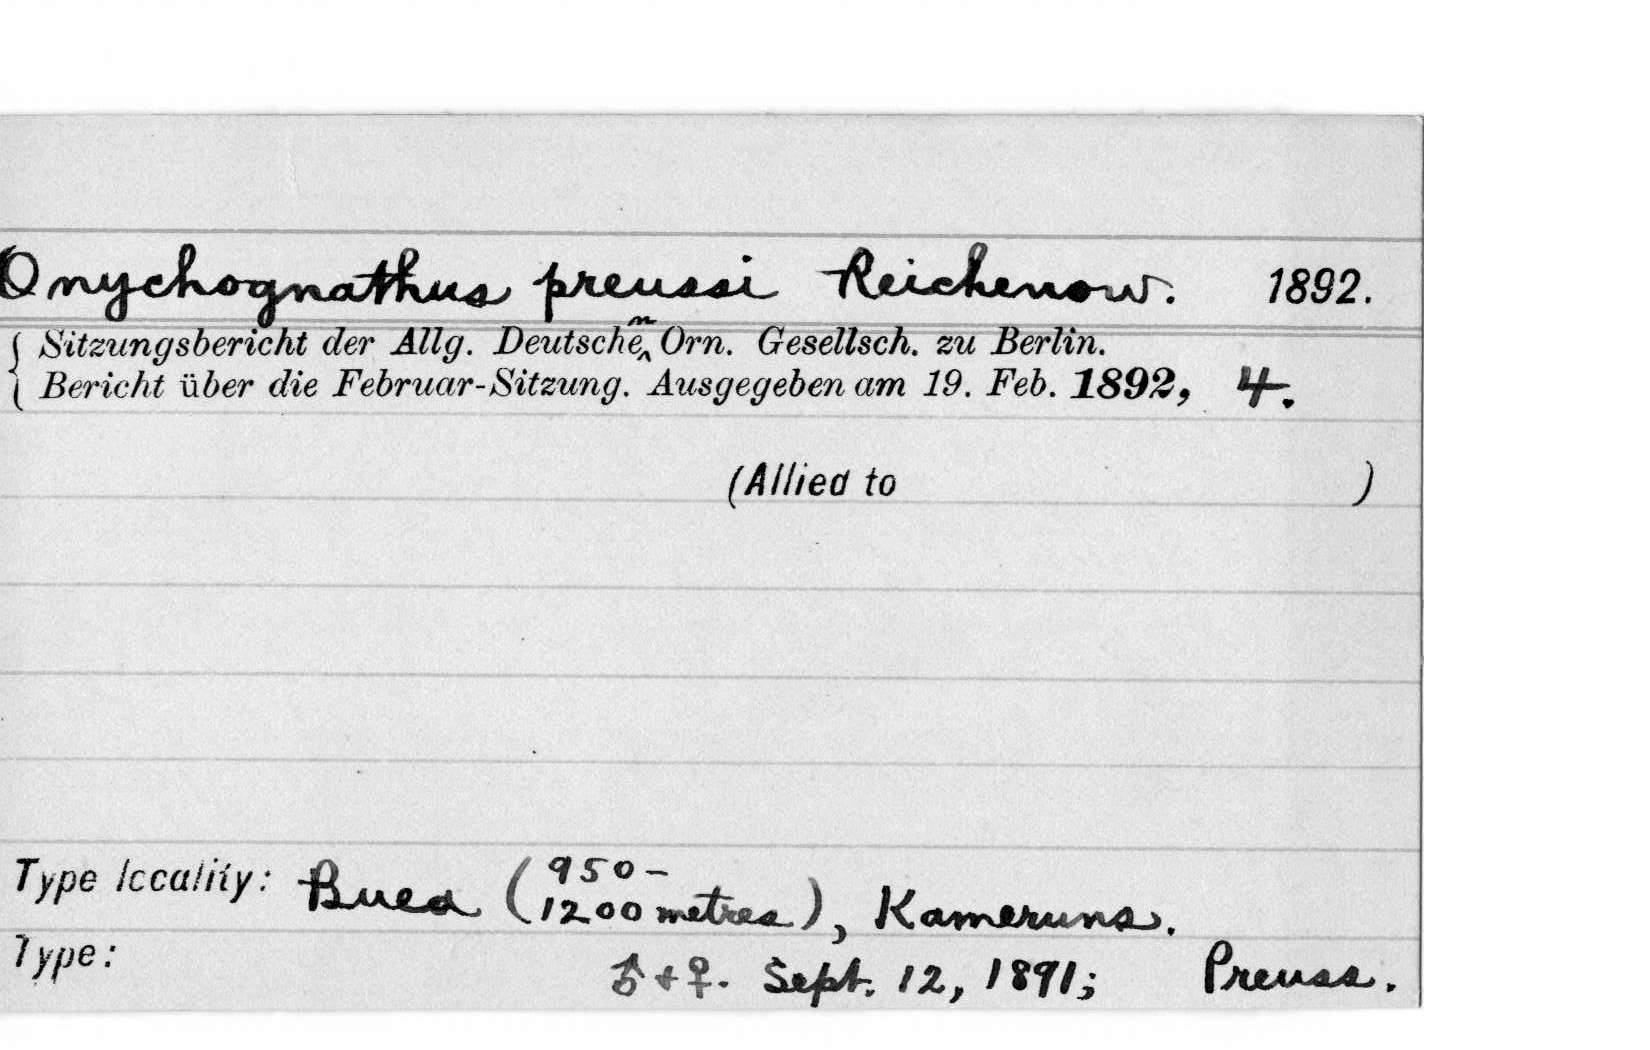 Onychognathus preussi Reichenow. 1892.
Sitzungsbericht der Allg. Deutschen Orn. Gesellsch. zu Berlin.
Bericht über die Februar-Sitzung. Ausgegeben am 19. Feb. 1892, 4.
(Allied to )
Type locality: Buea (950-1200 metres), Kameruns.
Type: ♂ + ♀. Sept. 12, 1891; Preuss.